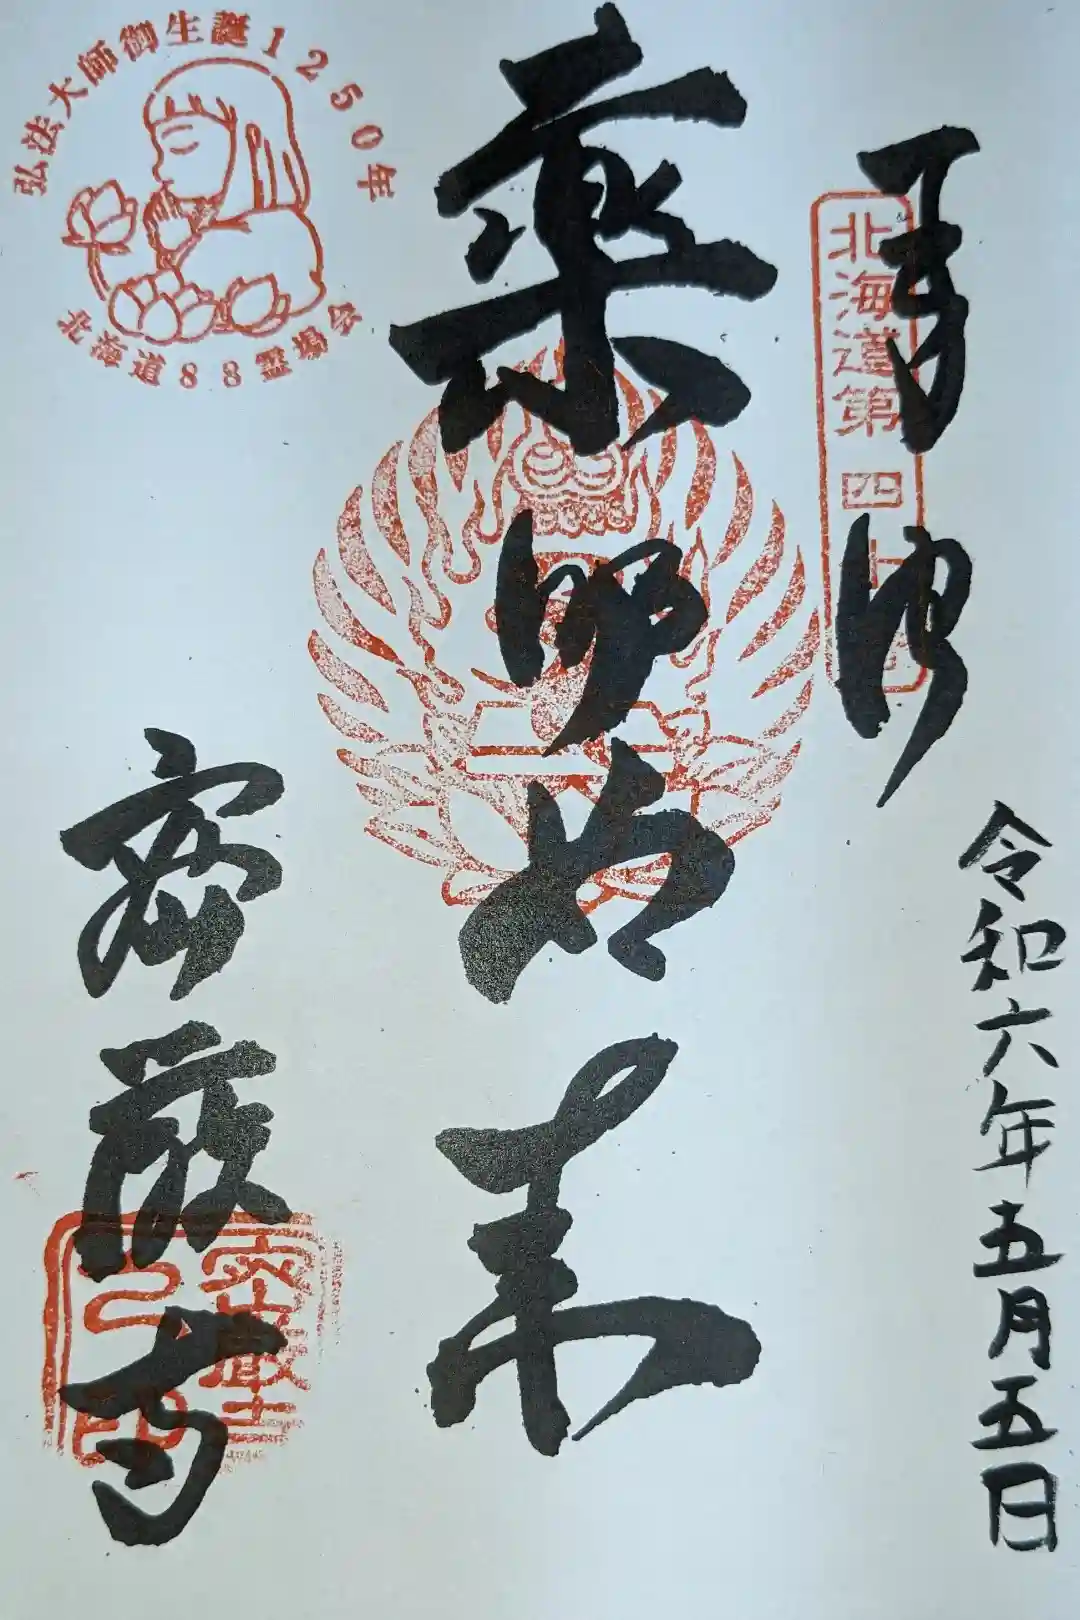 奉拝
北海道第四十
令和六年五月五日
薬師如来
弘法大師御生誕1250年
北海道88霊場会
密厳寺
密厳寺
之印